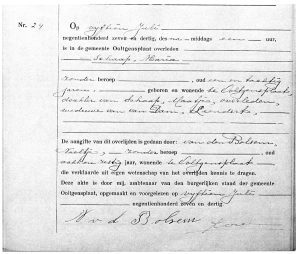 Nr. 24
Op vyftien Juli
negentienhonderd zeven en dertig, des na-middags een uur,
is in de gemeente Ooltgensplaat overleden
Schaap, Maria
zonder beroep, oud een en tachtig
jaren, geboren en wonende te Ooltgensplaat,
dochter van Schaap, overleden,
weduwe van van Dam, Leendert.
De aangifte van dit overlijden is gedaan door: van den Bolsem,
zonder beroep, oud
zestig jaar, wonende te Ooltgensplaat
die verklaarde uit eigen wetenschap van het overlijden kennis te dragen.
Deze akte is door mij, ambtenaar van den burgerlijken stand der gemeente
Ooltgensplaat, opgemaakt en voorgelezen op vyftien Juli
negentienhonderd zeven en dertig.
N v d Bolsem